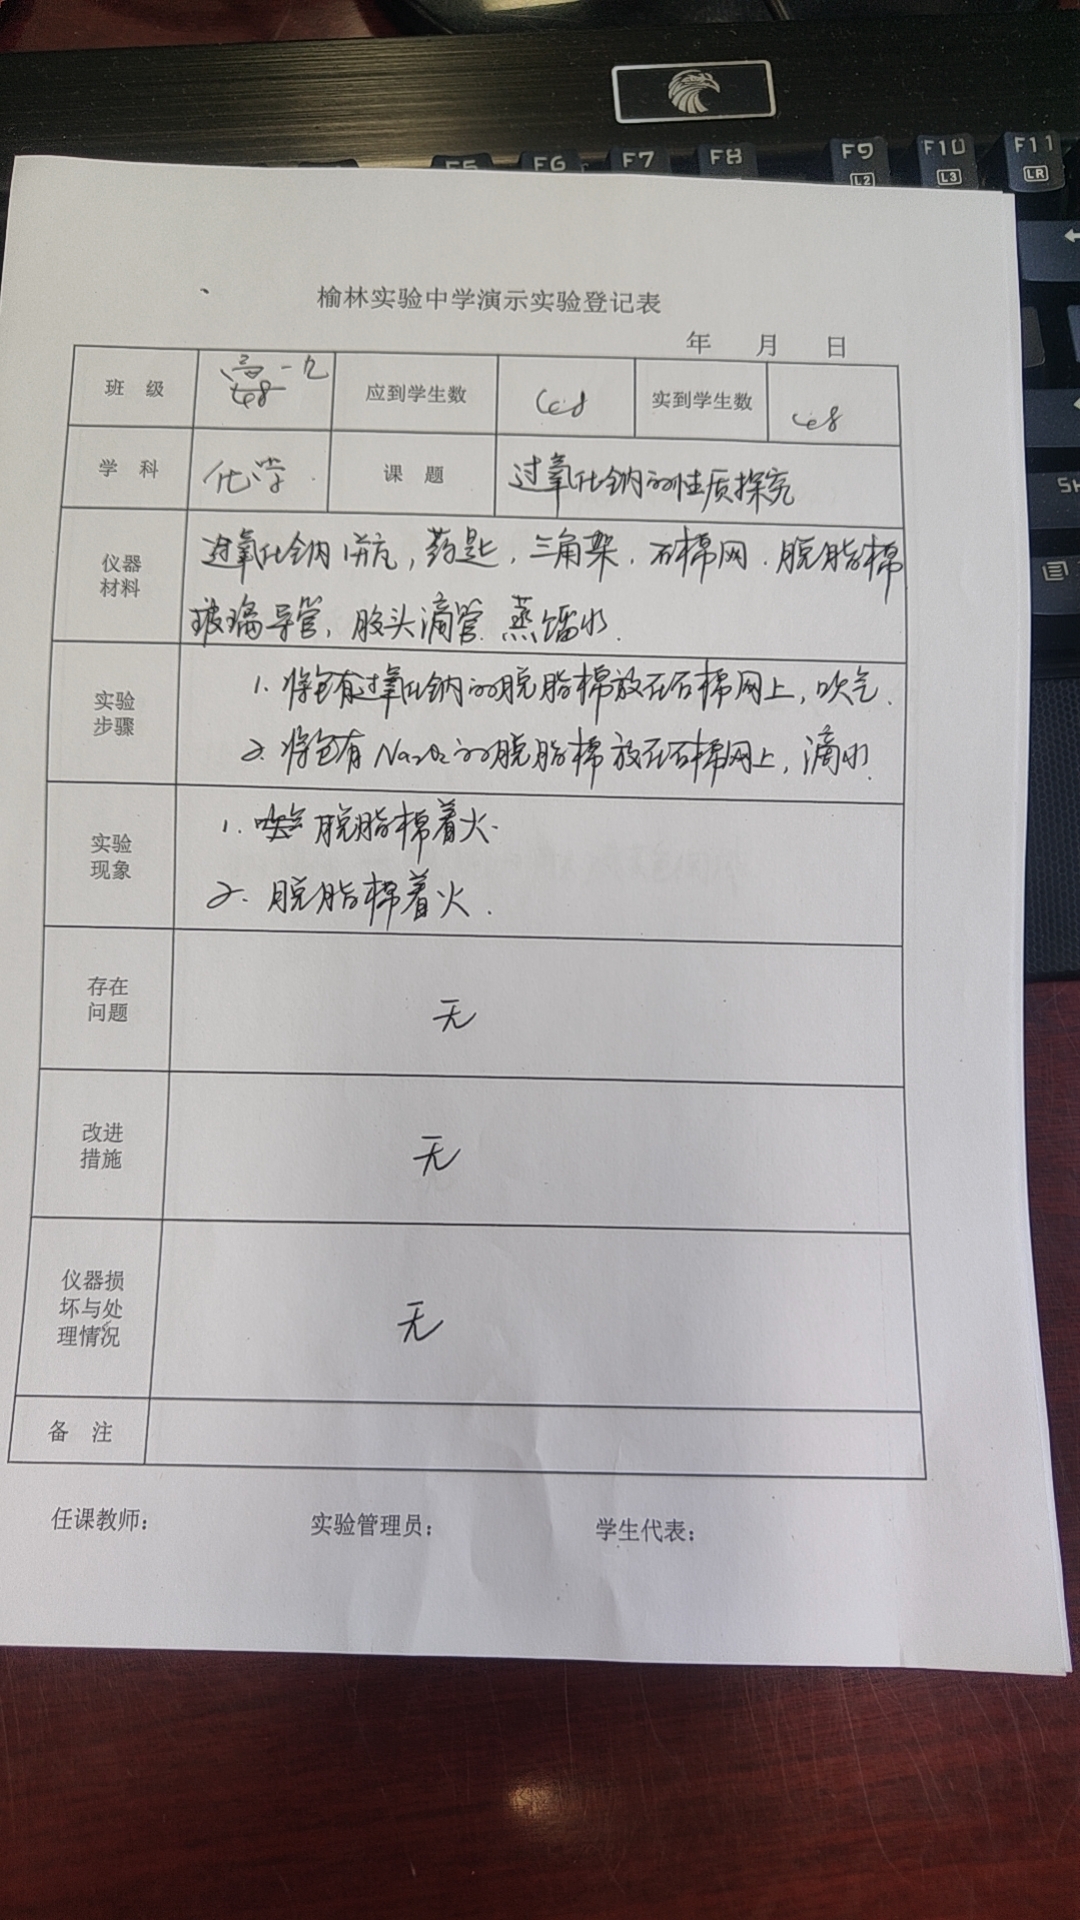 F5 F6 F7 F8 F9 F10 F11
L2 L3 LR
榆林实验中学演示实验登记表
年 月 日
班 级 高一九 应到学生数 68 实到学生数 68
学 科 化学 课 题 过氧化钠的性质探究
仪器材料 过氧化钠1瓶，药匙，三角架．石棉网．脱脂棉
玻璃导管，胶头滴管．蒸馏水．
实验步骤 1．将包有过氧化钠的脱脂棉放在石棉网上，吹气．
2．将包有Na₂O₂的脱脂棉放在石棉网上，滴水．
实验现象 1．脱脂棉着火．
2．脱脂棉着火．
存在问题 无
改进措施 无
仪器损坏与处理情况 无
备 注
任课教师： 实验管理员： 学生代表：